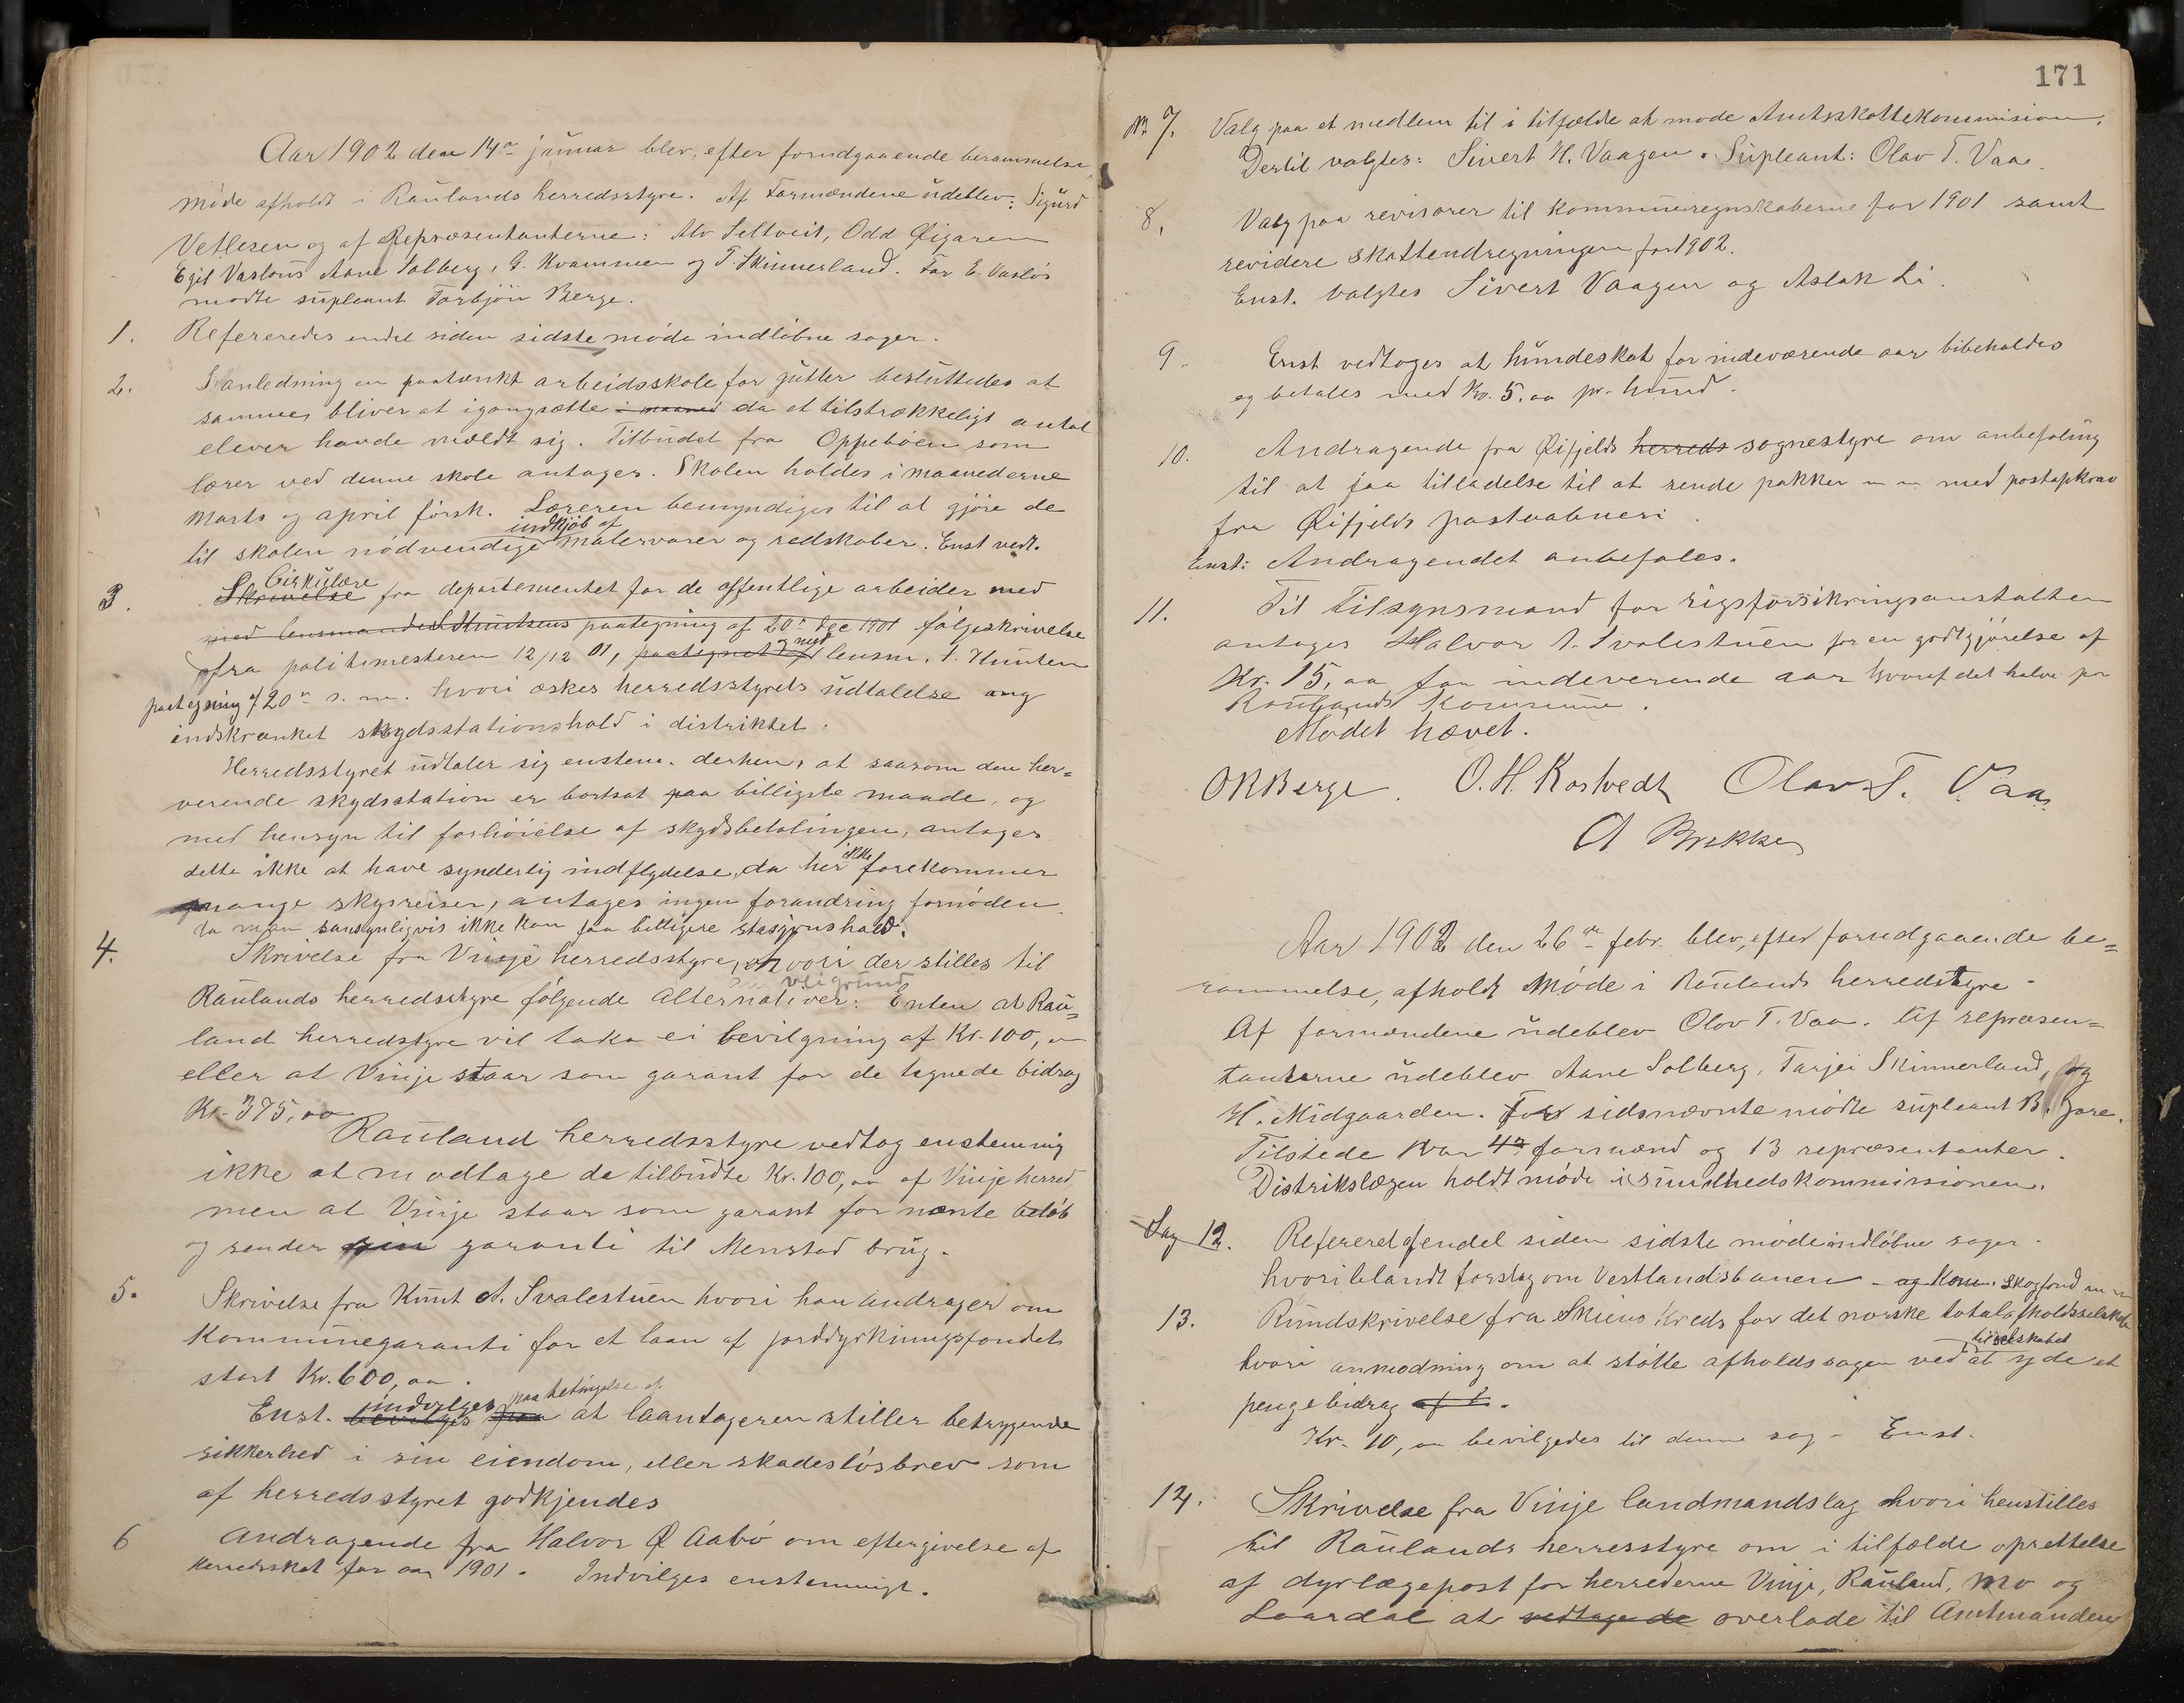 Aar 1902 den 14de januar blev, efter forudgaaende berammelse
møde afholdt i Raulands herredsstyre. Af Formændene udeblev: Sigurd
Vetlesen og af Repræsentanterne: Alv Seltveit, Odd Øigaren
Egil Vaslous Aane Solberg, G. Kvammen og T. Skinnerland. For E. Vasløs
mødte supleant Torbjön Berge.
1. Refereredes endel siden sidste møde indløbne sager.
2. I anledning en paatænkt arbeidsskole for gutter besluttedes at
sammes bliver at igangsætte i maaned da et tilstrækkeligt antal
elever havde meldt sig. Tilbudet fra Oppebøen som
lærer ved denne skole antages. Skolen holdes i maanederne
Marts og april førsk. Læreren bemyndiges til at gjøre de
indkjöb af
til skolen nødvendige matervarer og redskaber. Enst vedt.
Cirkulære
3. Skrivelse fra departementet for de offentlige arbeider med
med lensmanden Knutsens paategning af 20de Dec 1901 følgeskrivelse
og med
fra politimesteren 12/12 01, paategnet af lensm. Knuten
paategning af 20de s. m. hvori æskes herredsstyrets udtalelse ang
indskrænket skydsstationshold i distriktet.
Herredsstyret udtaler sig enstem. derhen, at saasom den her=
verende skydsstation er bortsat paa billigste maade, og
med hensyn til forhøielse af skydsbetalingen, antages
ikke
dette ikke at have synderlig indflydelse, da her forekommer
mange skysreiser, antages ingen forandring fornøden
da man sansynligvis ikke kan faa billigere stasjonshold.
4. Skrivelse fra Vinje herredsstyre, hvori der stilles til
veigrund
Raulands herredsstyre følgende alternativer: Enten at Rau=
land herredstyre vil taka ei bevilgning af Kr. 100,
eller at Vinje staar som garant for de tegnede bidrag
Kr. 375,00
Rauland herredsstyre vedtog enstemmig
ikke at modtage de tilbudte Kr. 100,00 af Vinje herred
men at Vinje staar som garant for nænte beløb
og sender sin garanti til Menstad brug.
5. Skrivelse fra Knut A. Svalestuen hvori han andrager om
Kommunegaranti for et laan af jorddyrkningsfondet
stort Kr. 600,00.
indvilges paa betingelse af
Enst. bevilges paa at laantageren stiller betryggende
sikkerhed i sin eiendom, eller skadesløsbrev som
af herredsstyret godkjendes
6 Andragende fra Halvor Ø Aabø om eftergivelse af
Herredsskat for aar 1901. Indvilges enstemmigt.
171
No 7. Valg paa et medlem til i tilfælde at møde Amtsskattekommision.
Dertil valgtes: Sivert H. Vaagen. Supleant: Olav T. Vaa.
8. Valg paa revisorer til kommuneregnskaberne for 1901 samt
revidere skattendregningen for 1902.
Enst. valgtes Sivert Vaagen og Aslak Li.
9. Enst vedtoges at hundeskat for indeværende aar bibeholdes
og betales med Kr. 5.00 pr. hund.
10. Andragende fra Øifjelds herreds sognestyre om anbefaling
til at faa tilladelse til at sende pakker m. m. med postopkrav
fra Øifjelds postaabneri.
Enst: Andragendet anbefales.
11. Til Tilsynsmand for rigsforsikringsanstalten
antages Halvor A. Svalestuen for en godtgjørelse af
Kr. 15,00 for indeverende aar hvoraf det halve paa
Raulands kommune.
Mødet hævet.
OKBerge. O. H. Kostvedt Olav T. Vaa
A Brekke
Aar 1902 den 26de febr. blev, efter forudgaaende be=
rammelse, afholdt Møde i Raulands herredstyre.
Af formændene udeblev Olov T. Vaa. Af repræsen=
tanterne udeblev Aane Solberg, Tarjei Skinnerland, og
H. Midgaarden. For sidsnævnte mødte supleant B. Gare.
Tilstede var 4 formænd og 13 repræsentanter.
Distrikslægen holdt møde i sundhedskommissionen.
Sag 12. Refereret endel siden sidste møde indløbne sager.
hvoriblandt forslag om Vestlandsbanen - og Kom. skogfond m m
13. Rundskrivelse fra Skiens Kreds for det norske totalafholdsselskab
til selskabet
hvori anmodning om at støtte afholdssagen ved at yde et
pengebidrag af K.
Kr. 10,00 bevilgedes til denne sag - Enst.
14. Skrivelse fra Vinje landmandslag hvori henstilles
til Raulands herresstyre om i tilfælde oprettelse
af dyrlægepost for herrederne Vinje, Rauland, Mo og
Laardal at vedtage de overlade til Amtmanden